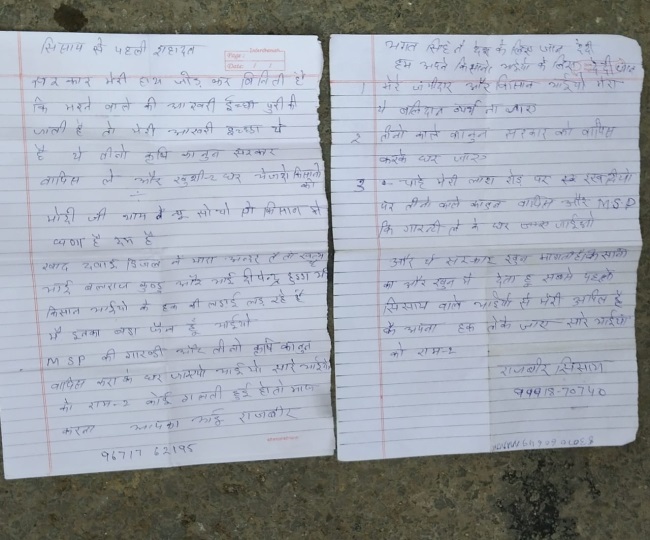 सिसाय से पहली शहादत
सरकार मेरी हाथ जोड़ कर विनिती है
कि मरने वाले की आखरी ईच्छा पुरी की
जाती है तो मेरी आखरी इच्छा ये
है ये तीनो कृषि कानुन सरकार
वापिस ले और खुशी-२ घर भेजदो किसानो
को
मोदी जी आम
है
खाद दवाई डिजल ने मारा
भाई बलराज कुण्डु और भाई दीपेन्द्र हुड्डा भी
किसान भाईयो के हक की लडाई लड़ रहे है
मैं इनका बड़ा फैन हूँ भाईयो
MSP की गारंटी और तीनो कृषि कानून
वापिस करा के घर जाना भाईयो सारे भाईयो
को राम-२ कोई गलती हुई हो तो माफ
करना आपका भाई राजबीर
96717 62195
भगत सिंह ने देश के लिए जान देदी
हम अपने किसानो भाईयो के लिए
1 मेरे जमीदार और किसान भाईयो मेरा
ये बलिदान व्यर्थ ना जाए
2 तीनो काले कानुन सरकार को वापिस
करके घर जाए
3 चाहे मेरी लाश रोड़ पर रख दियो
पर तीनो काले कानून वापिस और MSP
कि गारन्टी ले के घर जाईयो
और ये सरकार खून मांगती है किसानो
का और खून मैं देता हू सबसे पहले
सिसाय वाले भाईयो से मेरी अपिल है
के अपना हक लेके जाए सारे भाईयो
को राम-2
राजबीर सिसाय
99918-70740